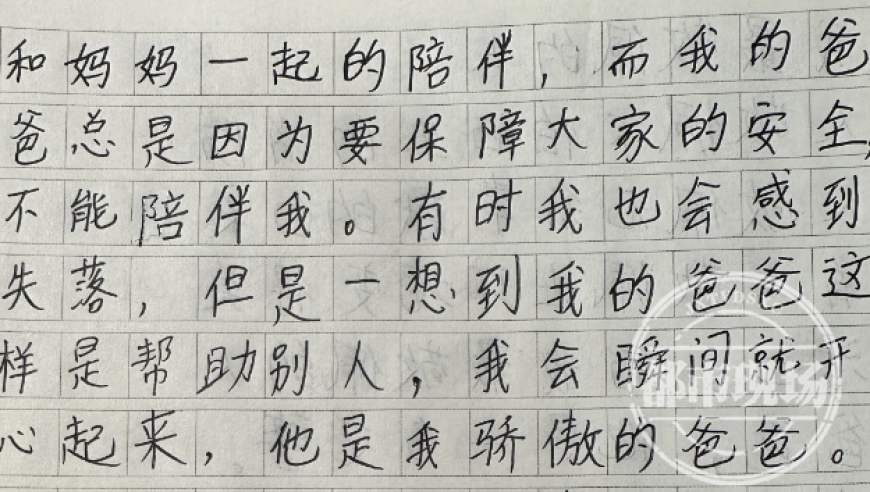 和妈妈一起的陪伴，而我的爸
爸总是因为要保障大家的安全，
不能陪伴我。有时我也会感到
失落，但是一想到我的爸爸这
样是帮助别人，我会瞬间就开
心起来，他是我骄傲的爸爸。
都市现场